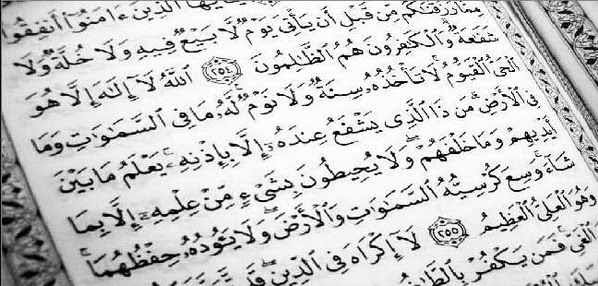 ٱلَّذِينَ ءَامَنُوٓا۟ أَنفِقُوا۟
مِمَّا رَزَقْنَٰكُم مِّن قَبْلِ أَن يَأْتِىَ يَوْمٌ لَّا بَيْعٌ فِيهِ وَلَا خُلَّةٌ وَلَا
شَفَٰعَةٌ ۗ وَٱلْكَٰفِرُونَ هُمُ ٱلظَّٰلِمُونَ ٢٥٤ ٱللَّهُ لَآ إِلَٰهَ إِلَّا هُوَ
ٱلْحَىُّ ٱلْقَيُّومُ ۚ لَا تَأْخُذُهُۥ سِنَةٌ وَلَا نَوْمٌ ۚ لَّهُۥ مَا فِى ٱلسَّمَٰوَٰتِ وَمَا
فِى ٱلْأَرْضِ ۗ مَن ذَا ٱلَّذِى يَشْفَعُ عِندَهُۥٓ إِلَّا بِإِذْنِهِۦ ۚ يَعْلَمُ مَا بَيْنَ
أَيْدِيهِمْ وَمَا خَلْفَهُمْ ۖ وَلَا يُحِيطُونَ بِشَىْءٍ مِّنْ عِلْمِهِۦٓ إِلَّا بِمَا
شَآءَ ۚ وَسِعَ كُرْسِيُّهُ ٱلسَّمَٰوَٰتِ وَٱلْأَرْضَ ۖ وَلَا يَـُٔودُهُۥ حِفْظُهُمَا ۚ
وَهُوَ ٱلْعَلِىُّ ٱلْعَظِيمُ ٢٥٥ لَآ إِكْرَاهَ فِى ٱلدِّينِ ۖ قَد
ٱلْغَىِّ ۚ فَمَن يَكْفُرْ